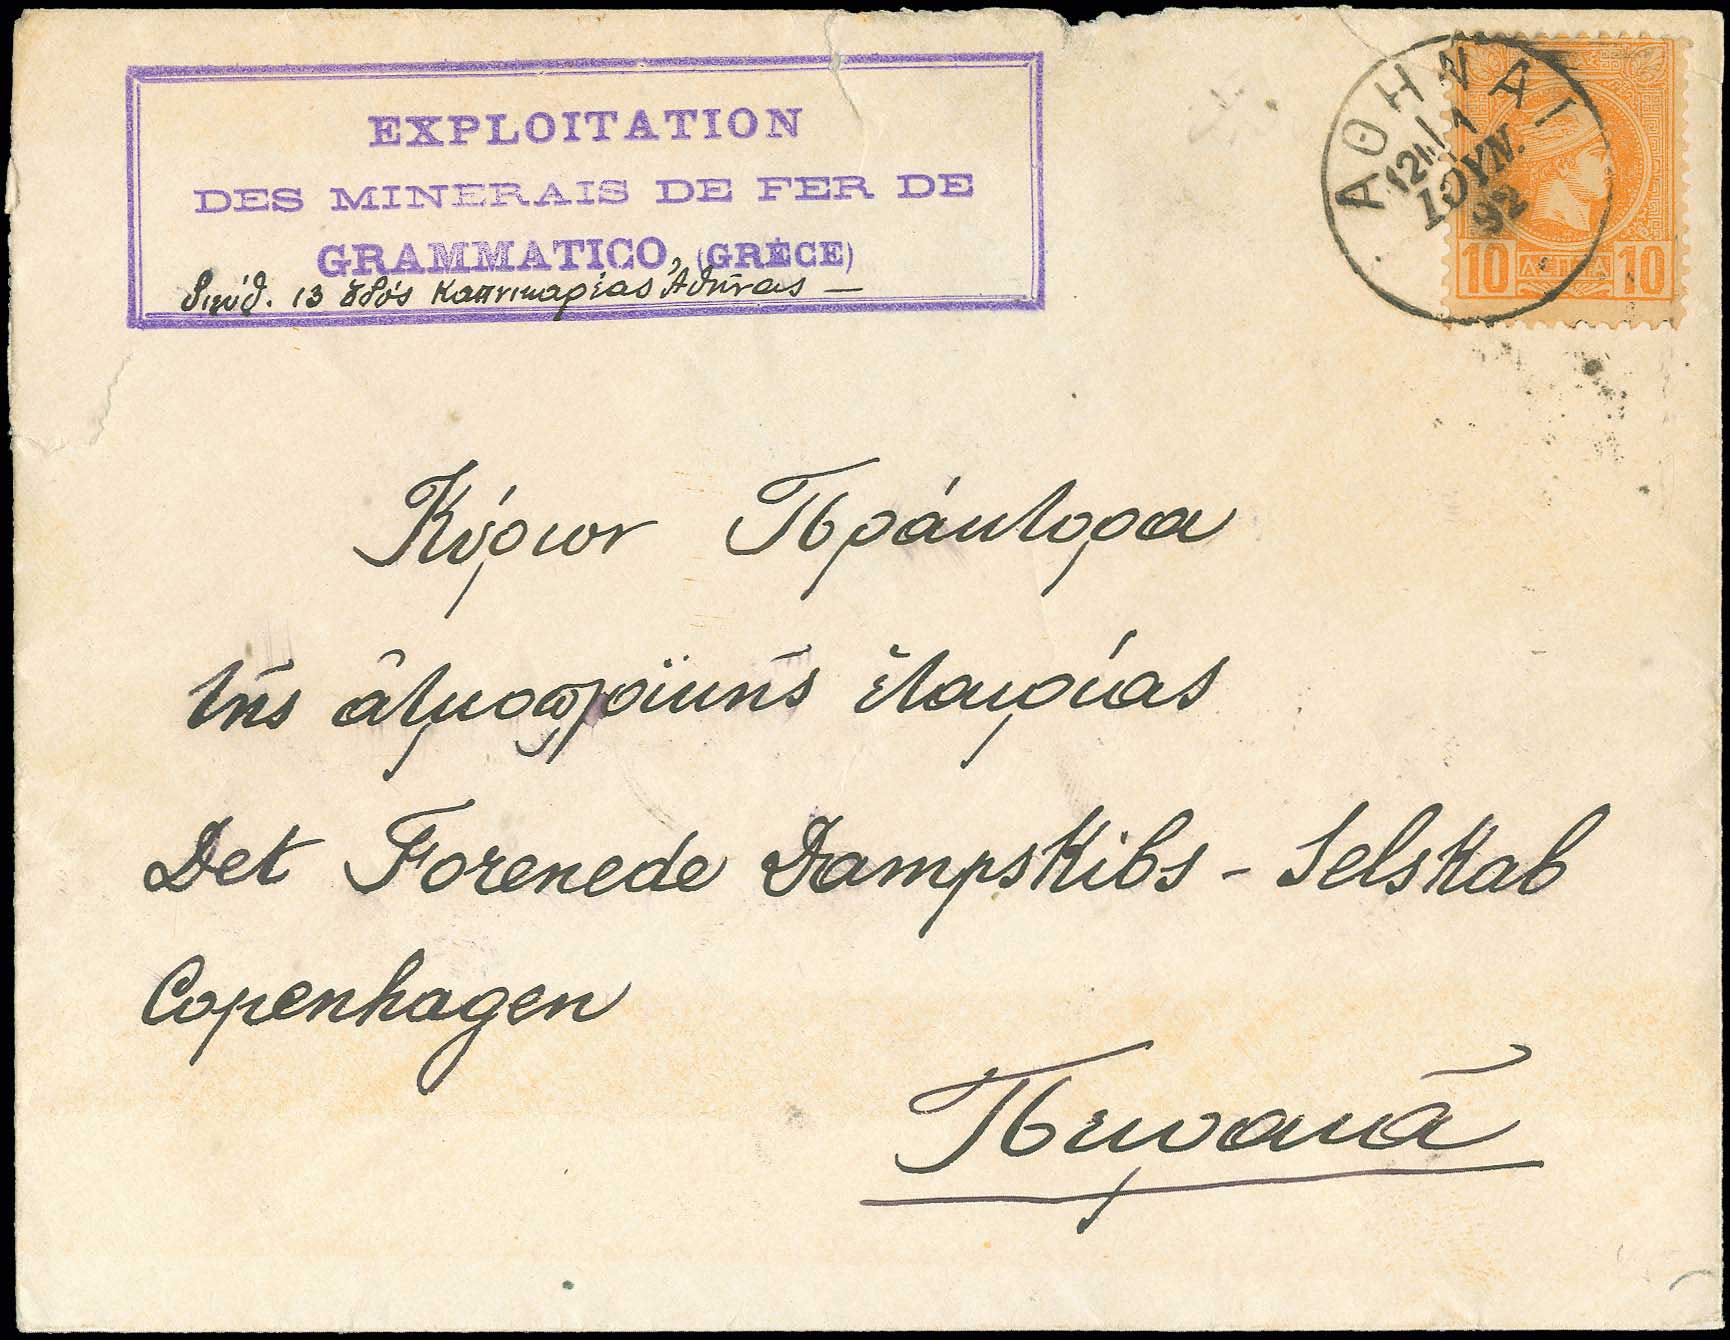 EXPLOITATION
DES MINERAIS DE FER DE
GRAMMATICO, (GRÈCE)
διεύθ. 13 ὁδός Καπνικαρέας Ἀθήνας —
ΑΘΗΝΑΙ
1
ΙΟΥΝ.
92
10 ΛΕΠΤΑ 10
Κύριον Πράκτορα
τῆς ἀτμοπλοϊκῆς ἑταιρίας
Det Forenede Dampskibs - Selskab
Copenhagen
Πειραιᾶ